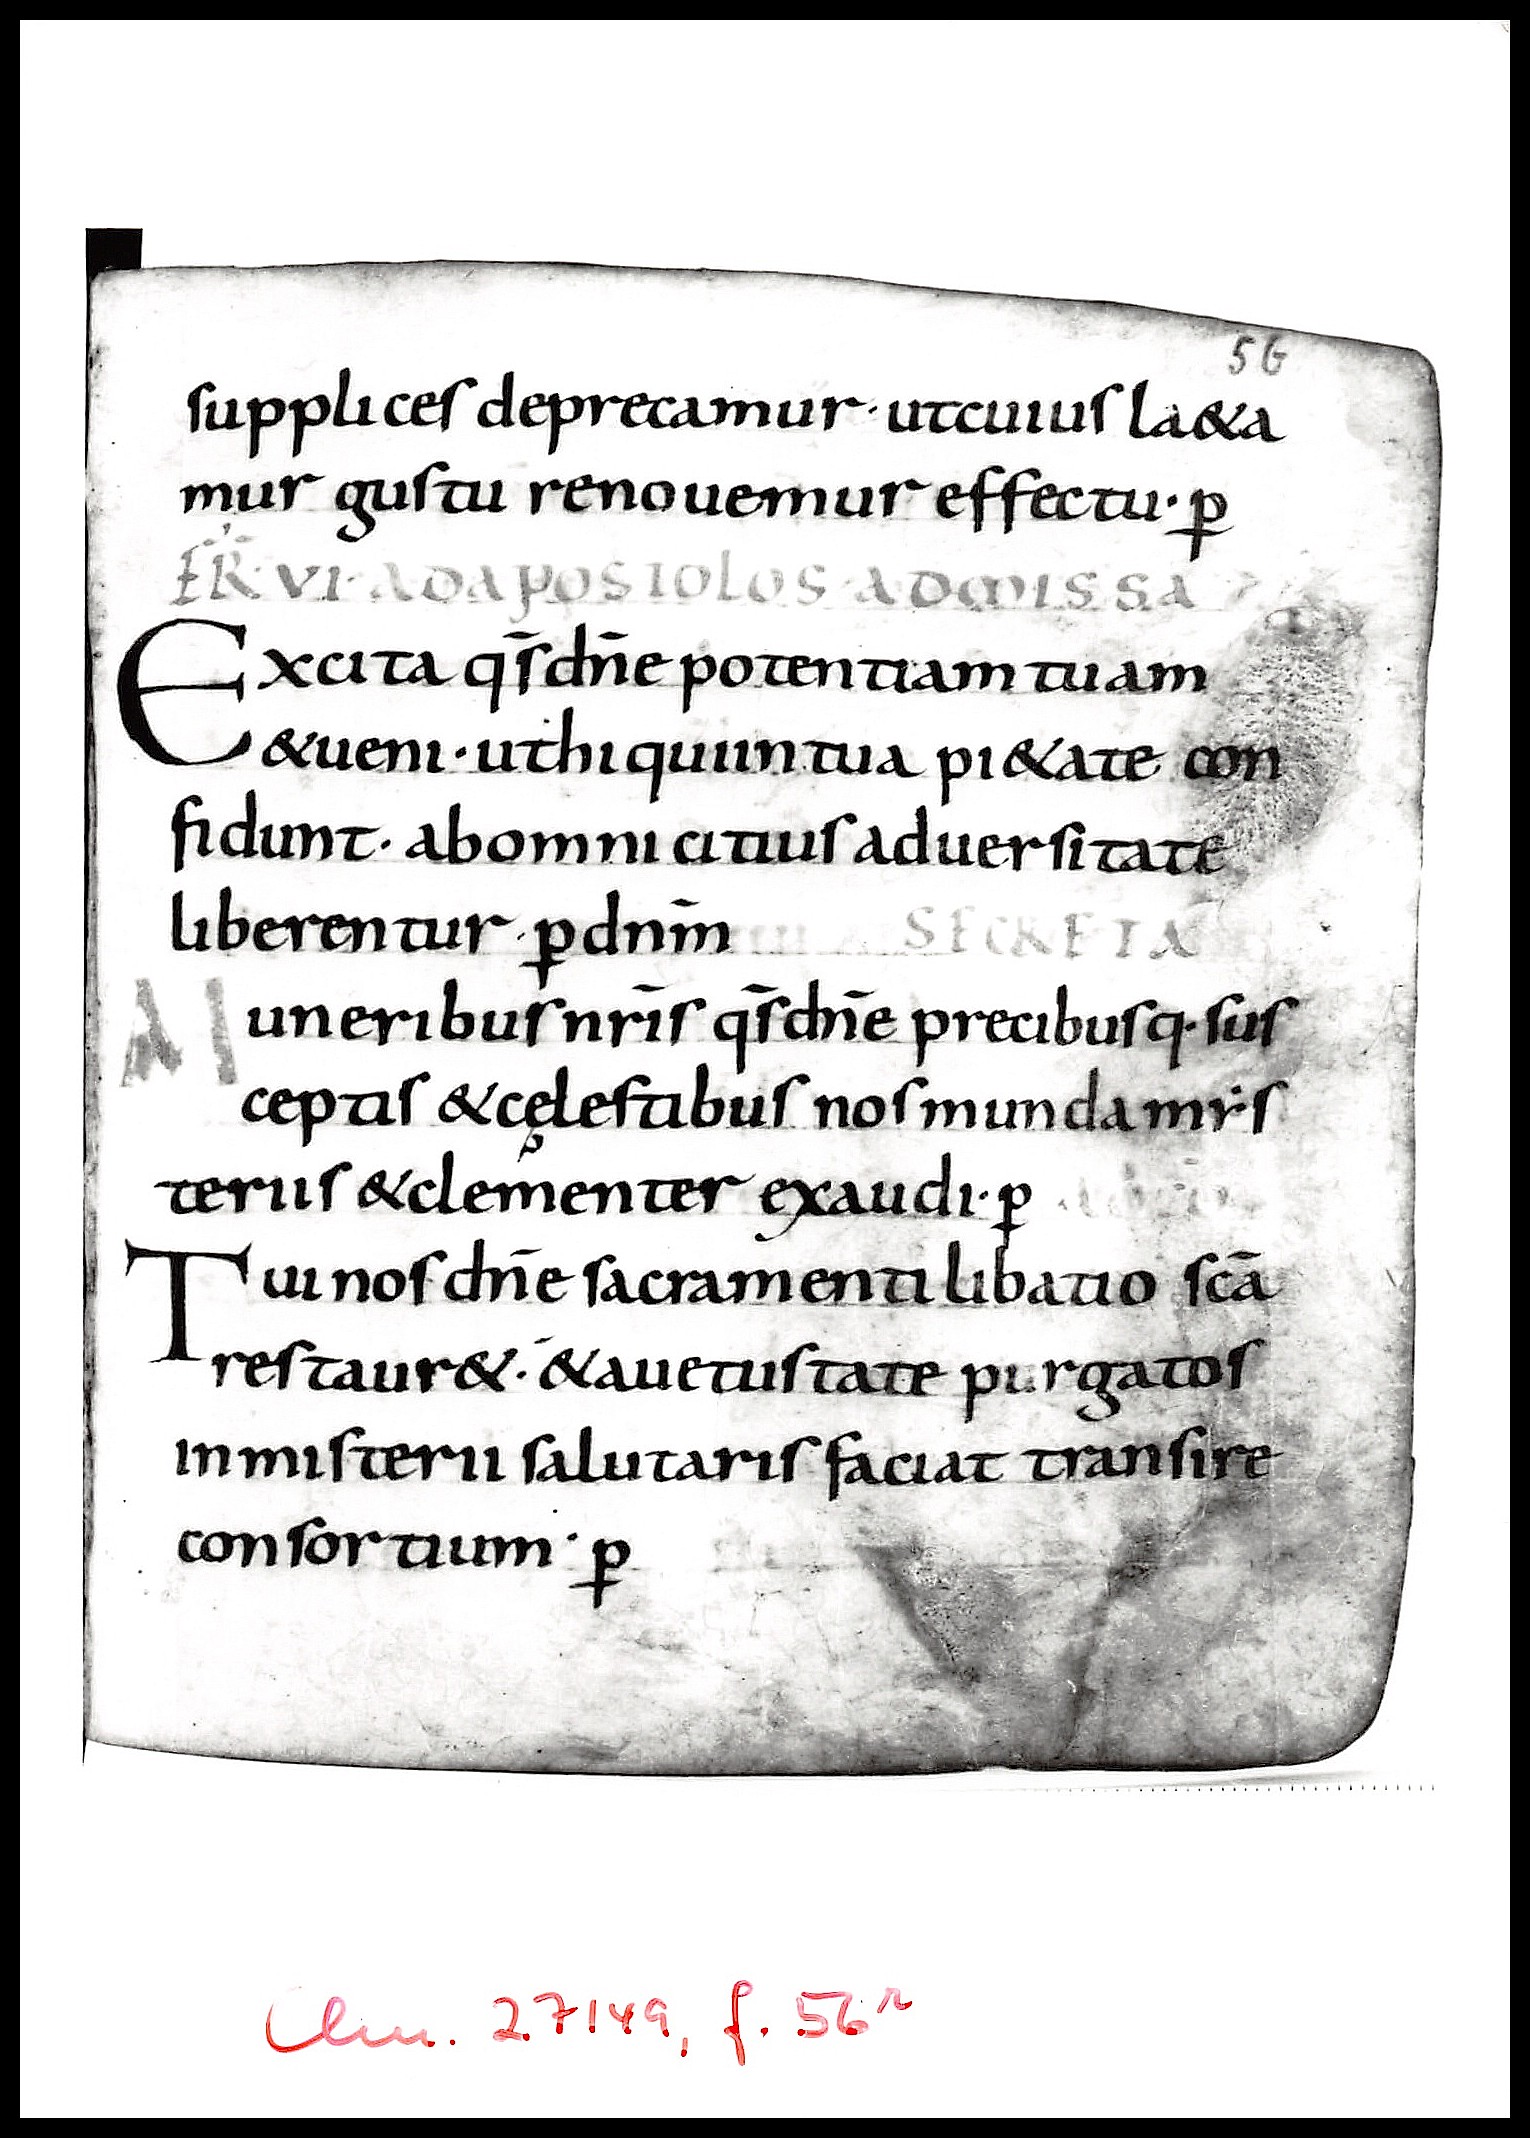 56
supplices deprecamur · utcuius la&a
mur gustu renouemur effectu · p̱
FR̄ · VI · ADAPOSTOLOS · ADMISSA
Excita qs̄ dn̄e potentiam tuam
&ueni · uthi quiin tua pi&ate con
fidunt · abomni citius aduersitate
liberentur · p̱ dnm̄ SECRETA
Muneribus nr̄is qs̄ dn̄e precibusq· sus
ceptis &cęlestibus nos munda mẏs
teriis &clementer exaudi · p̱
Tui nos dn̄e sacramenti libatio scā
restaur& · &auetustate purgatos
inmisterii salutaris faciat transire
consortium · p̱
Clm. 27149, f. 56r